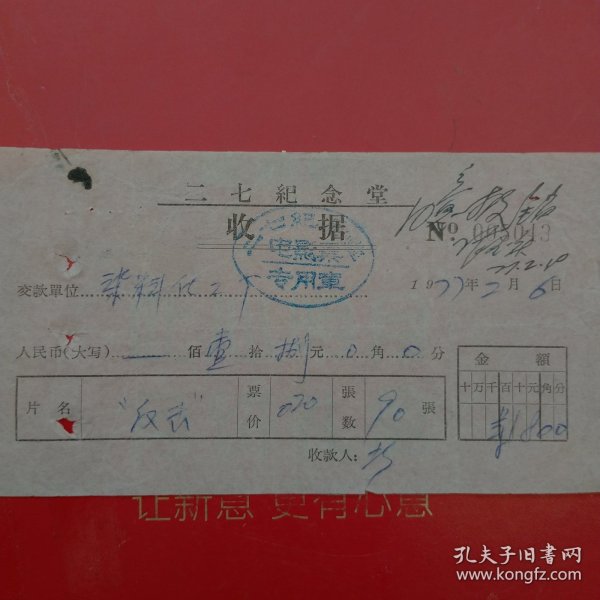 二七紀念堂
收据
№ 003043
二七紀
电影票
专用章
77.2.10
交款單位 染料化工厂 1977年2月6日
人民币(大写) 佰壹拾捌元0角0分
金額
十万千百十元角分
¥1800
片名 票价 020 張数 90 張
收款人:
让新意 更有心意
孔夫子旧书网
www.kongfz.com